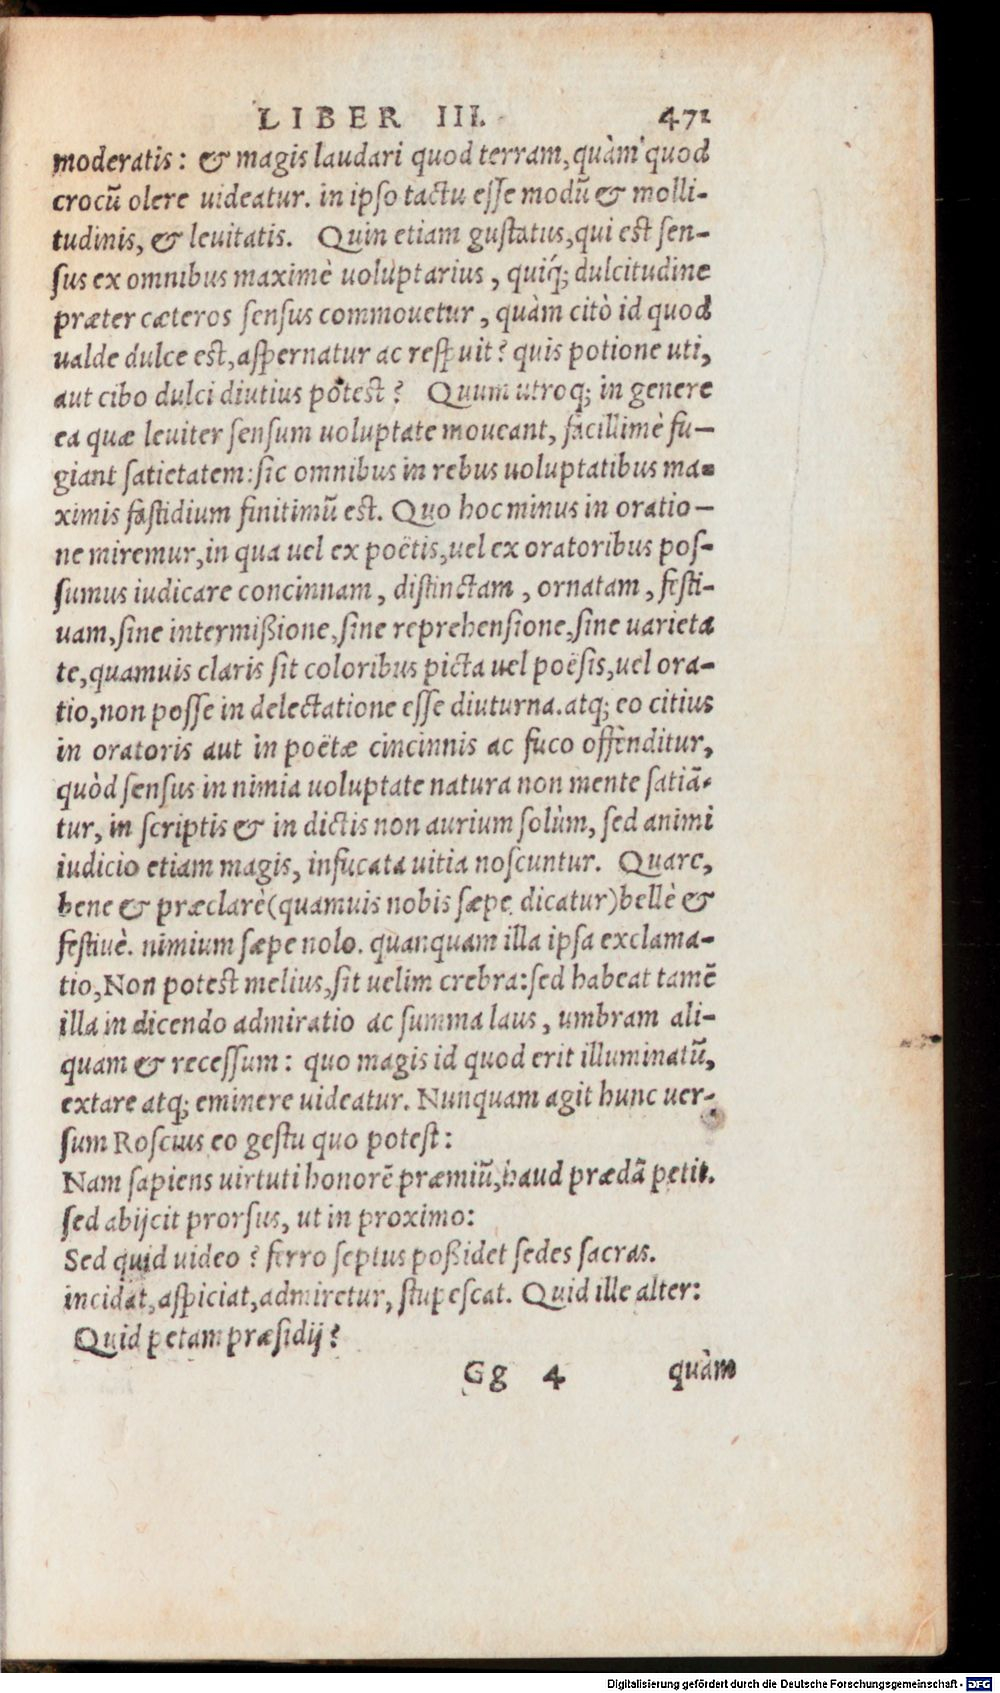 LIBER III. 471
moderatis: & magis laudari quod terram, quàm quod
crocũ olere uideatur. in ipso tactu esse modũ & molli-
tudinis, & leuitatis. Quin etiam gustatus, qui est sen-
sus ex omnibus maximè uoluptarius, quiq́; dulcitudine
præter cæteros sensus commouetur, quàm citò id quod
ualde dulce est, aspernatur ac respuit? quis potione uti,
aut cibo dulci diutius potest? Quum utroq; in genere
ea quæ leuiter sensum uoluptate moueant, facillimè fu-
giant satietatem: sic omnibus in rebus uoluptatibus ma-
ximis fastidium finitimũ est. Quo hoc minus in oratio-
ne miremur, in qua uel ex poëtis, uel ex oratoribus pos-
sumus iudicare concinnam, distinctam, ornatam, festi-
uam, sine intermißione, sine reprehensione, sine uarieta
te, quamuis claris sit coloribus picta uel poësis, uel ora-
tio, non posse in delectatione esse diuturna. atq; eo citius
in oratoris aut in poëtæ cincinnis ac fuco offenditur,
quòd sensus in nimia uoluptate natura non mente satiã-
tur, in scriptis & in dictis non aurium solùm, sed animi
iudicio etiam magis, infucata uitia noscuntur. Quare,
bene & præclarè (quamuis nobis sæpe dicatur) bellè &
festiuè. nimium sæpe nolo. quanquam illa ipsa exclama-
tio, Non potest melius, sit uelim crebra: sed habeat tamẽ
illa in dicendo admiratio ac summa laus, umbram ali-
quam & recessum: quo magis id quod erit illuminatũ,
extare atq; eminere uideatur. Nunquam agit hunc uer-
sum Roscius eo gestu quo potest:
Nam sapiens uirtuti honorẽ præmiũ, haud prædã petit.
sed abijcit prorsus, ut in proximo:
Sed quid uideo? ferro septus poßidet sedes sacras.
incidat, aspiciat, admiretur, stupescat. Quid ille alter:
Quid petam præsidij?
Gg 4 quàm
Digitalisierung gefördert durch die Deutsche Forschungsgemeinschaft - DFG